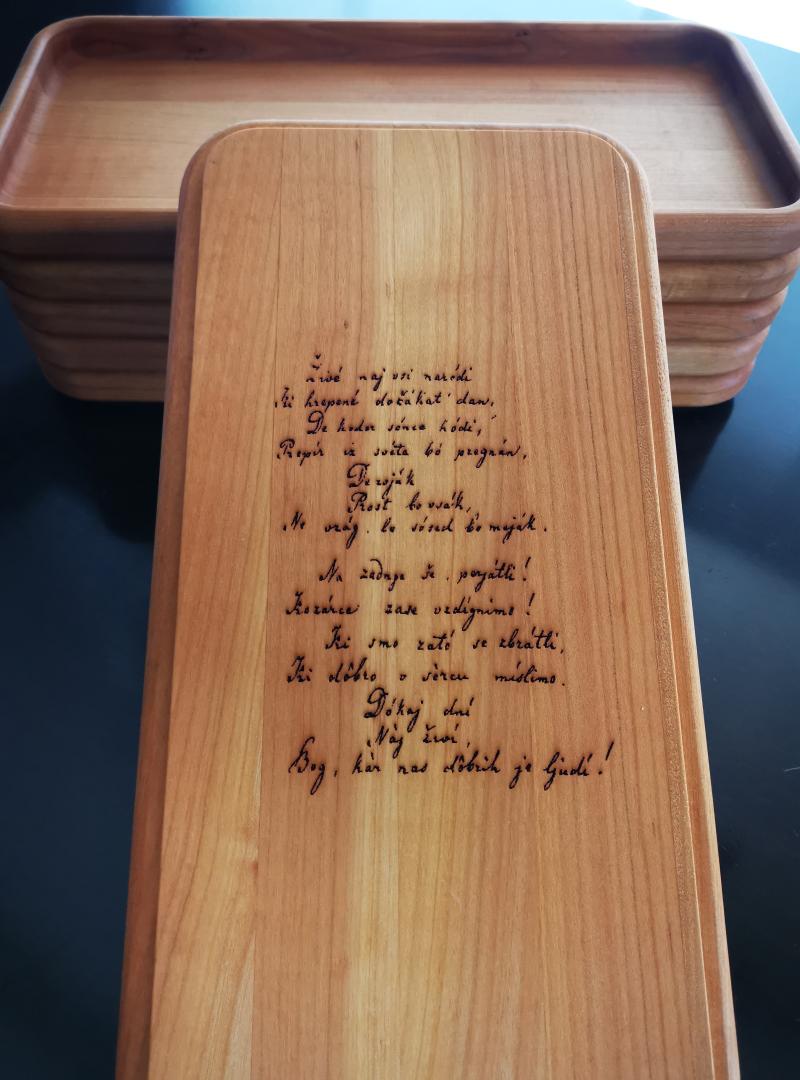 Živé naj vsi naródi
Ki hrepené dočákat' dan,
De koder sónce hódi,
Prepír iz svéta bó pregnán,
De roják
Prost bo vsák,
Ne vrág, le sósed bo meják.
Na zadnje še, perjátli!
Kozárce zase vzdígnimo!
Ki smo zató se zbrátli,
Ki dôbro v sèrcu míslimo.
Dókaj dní
Nàj živí,
Bog, kàr nas dôbrih je ljudí!